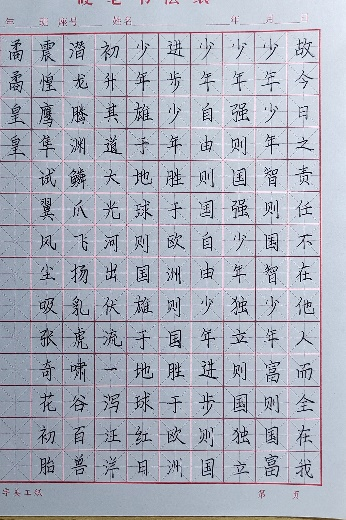 年 班 座号 姓名 年 月 日
故今日之责任不在他人而全在我
少年少年智则国智少年富则国富
少年强则国强少年独立则国独立
少年自由则国自由少年进步则国
进步少年胜于欧洲则国胜于欧洲
少年雄于地球则国雄于地球红日
初升其道大光河出伏流一泻汪洋
潜龙腾渊鳞爪飞扬乳虎啸谷百兽
震煌鹰隼试翼风尘吸张奇花初胎
矞矞皇皇
第 页